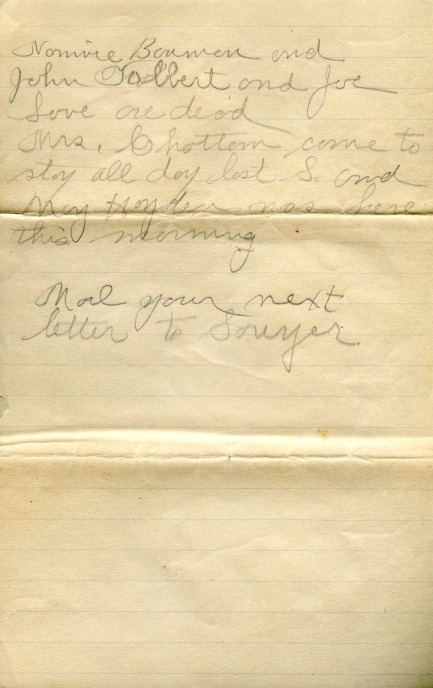 Nominie Bowman and
John Tolbert and Joe
Love are dead
Mrs. Chattem come to
stay all day last S. and
May Hayden was here
this morning
Mail your next
letter to Sawyer.